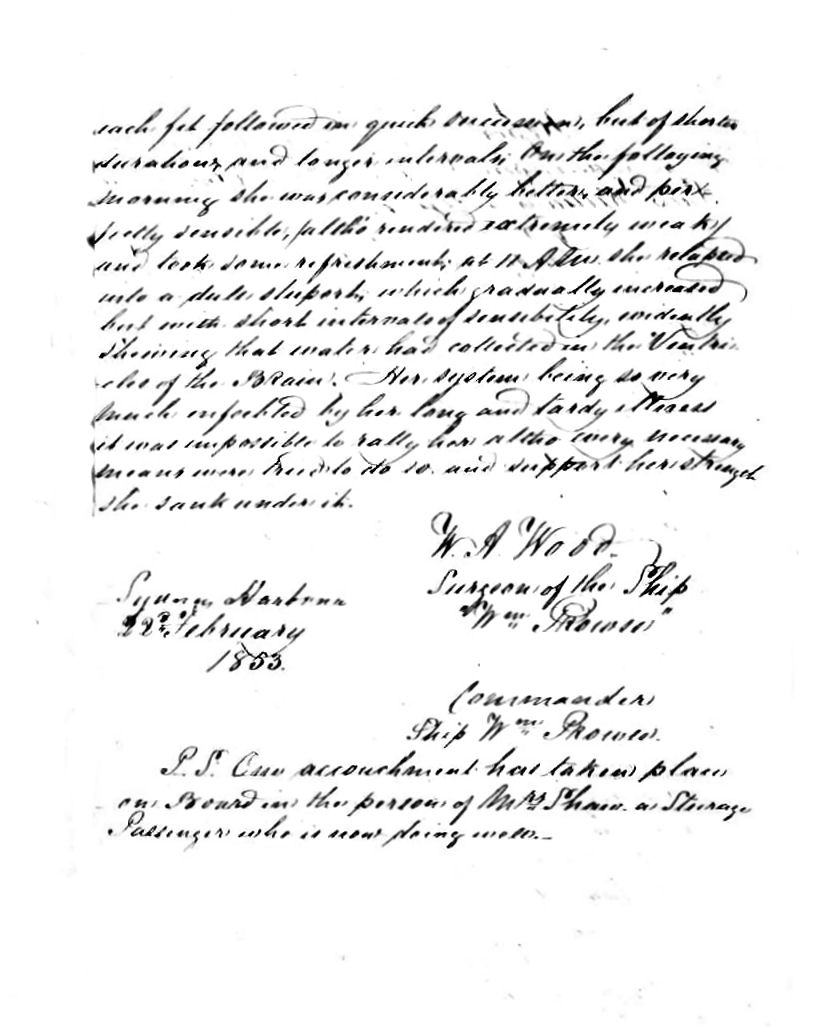 each fit followed in quick succession, but of shorter
durations, and longer intervals; On the following
morning she was considerably better, and per-
fectly sensible, (altho' rendered extremely weak)
and took some refreshment; at 11 A.M. she relapsed
into a dull stupor, which gradually increased
but with short intervals of sensibility, evidently
shewing that water had collected in the Ventri-
cles of the Brain. Her system being so very
much enfeebled by her long and tardy illness
it was impossible to rally her altho every necessary
means were tried to do so and support her strength
she sank under it.
W. A. Wood.
Surgeon of the Ship
"Wm Prowse"
Sydney Harbour
22d February
1853.
Commander
Ship Wm Prowse.
P.S. One accouchment has taken place
on Board in the person of Mrs Shaw a Steerage
Passenger who is now doing well.